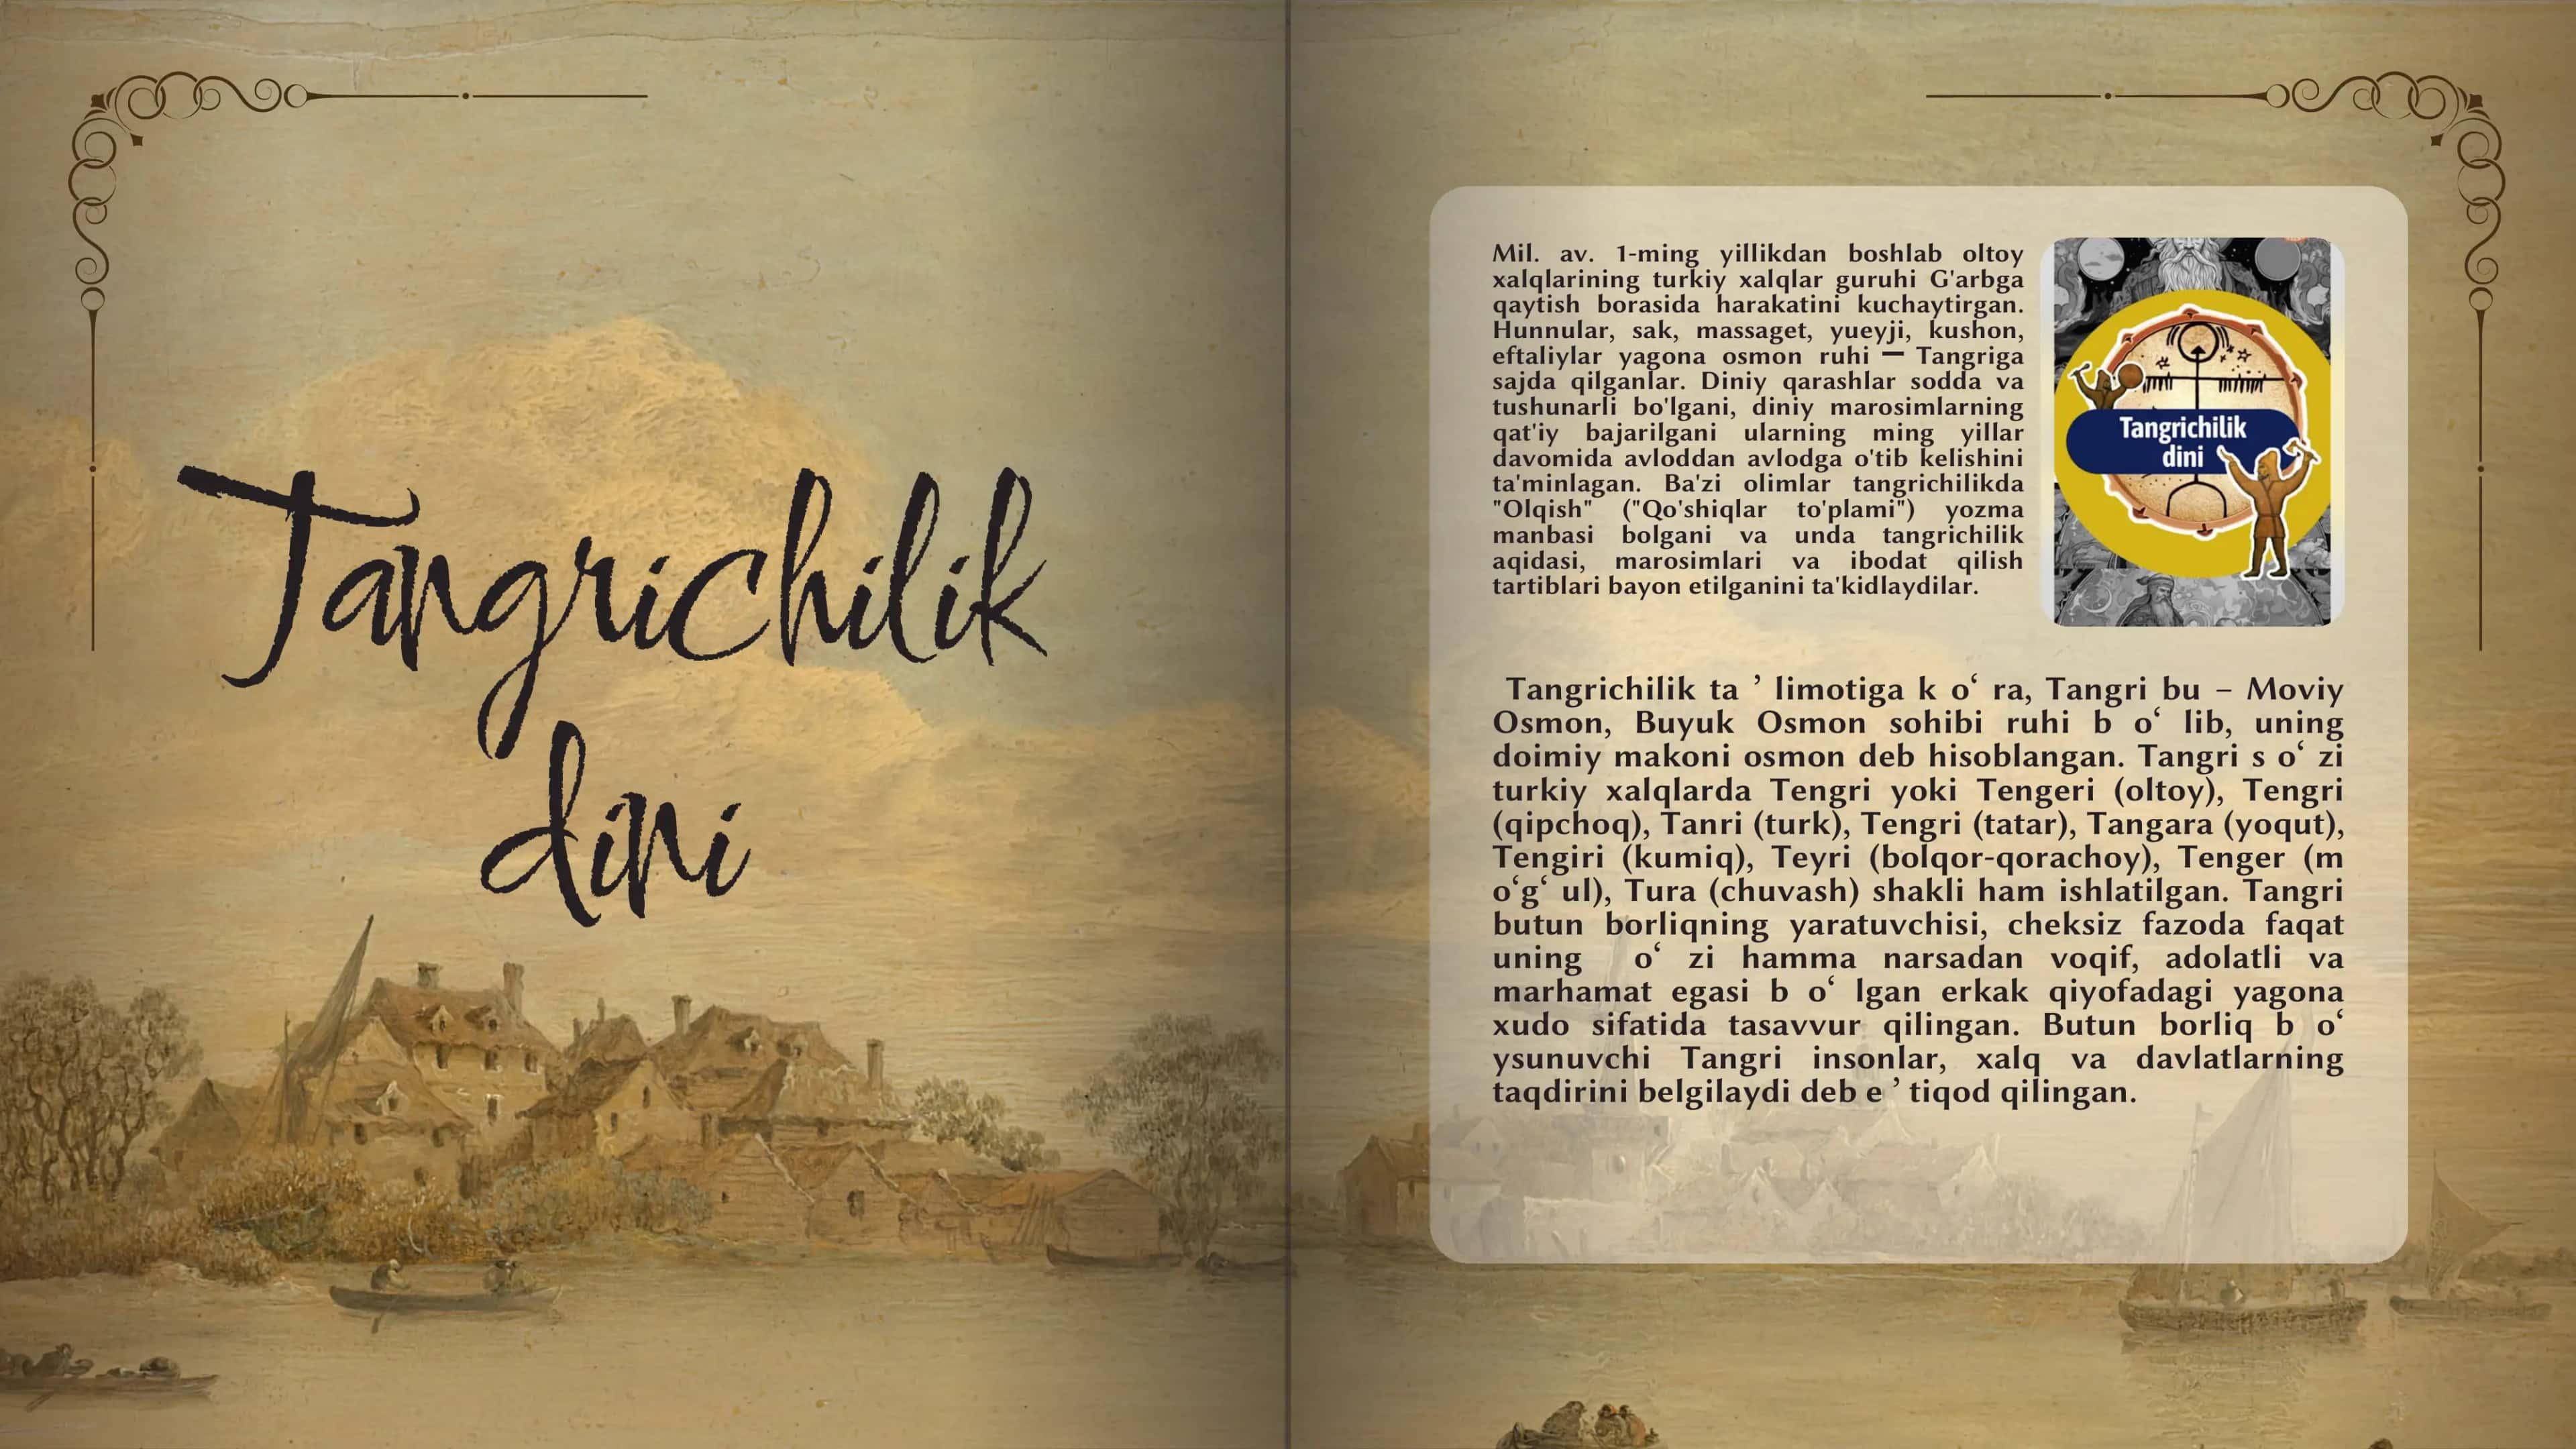 Tangrichilik
dini
Mil. av. 1-ming yillikdan boshlab oltoy
xalqlarining turkiy xalqlar guruhi G'arbga
qaytish borasida harakatini kuchaytirgan.
Hunnular, sak, massaget, yueyji, kushon,
eftaliylar yagona osmon ruhi — Tangriga
sajda qilganlar. Diniy qarashlar sodda va
tushunarli bo'lgani, diniy marosimlarning
qat'iy bajarilgani ularning ming yillar
davomida avloddan avlodga o'tib kelishini
ta'minlagan. Ba'zi olimlar tangrichilikda
"Olqish" ("Qo'shiqlar to'plami") yozma
manbasi bolgani va unda tangrichilik
aqidasi, marosimlari va ibodat qilish
tartiblari bayon etilganini ta'kidlaydilar.
Tangrichilik
dini
Tangrichilik ta ’ limotiga k o‘ ra, Tangri bu – Moviy
Osmon, Buyuk Osmon sohibi ruhi b o‘ lib, uning
doimiy makoni osmon deb hisoblangan. Tangri s o‘ zi
turkiy xalqlarda Tengri yoki Tengeri (oltoy), Tengri
(qipchoq), Tanri (turk), Tengri (tatar), Tangara (yoqut),
Tengiri (kumiq), Teyri (bolqor-qorachoy), Tenger (m
o‘g‘ ul), Tura (chuvash) shakli ham ishlatilgan. Tangri
butun borliqning yaratuvchisi, cheksiz fazoda faqat
uning o‘ zi hamma narsadan voqif, adolatli va
marhamat egasi b o‘ lgan erkak qiyofadagi yagona
xudo sifatida tasavvur qilingan. Butun borliq b o‘
ysunuvchi Tangri insonlar, xalq va davlatlarning
taqdirini belgilaydi deb e ’ tiqod qilingan.